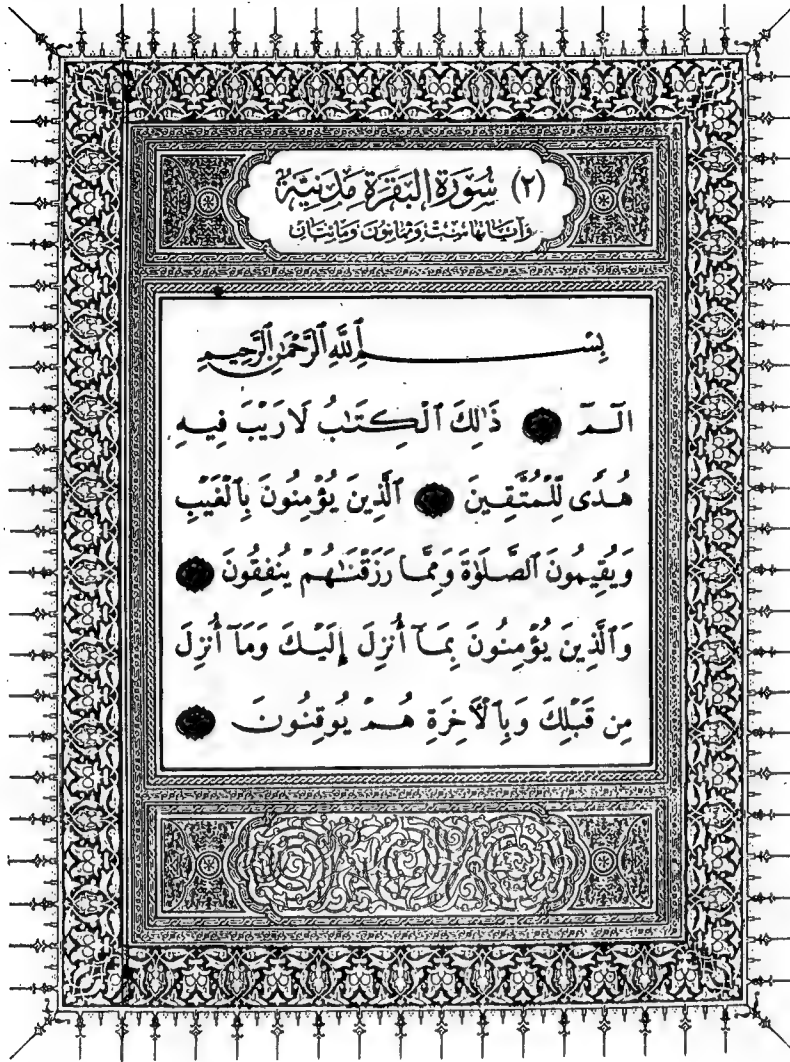 (٢) سُورَةُ البَقَرَةِ مَدَنِيَّةٌ
وَآيَاتُهَا سِتٌّ وَثَمَانُونَ وَمِائَتَانِ
بِسْمِ ٱللَّهِ ٱلرَّحْمَٰنِ ٱلرَّحِيمِ
الٓمٓ ذَٰلِكَ ٱلْكِتَٰبُ لَا رَيْبَ فِيهِ
هُدًى لِّلْمُتَّقِينَ ٱلَّذِينَ يُؤْمِنُونَ بِٱلْغَيْبِ
وَيُقِيمُونَ ٱلصَّلَوٰةَ وَمِمَّا رَزَقْنَٰهُمْ يُنفِقُونَ
وَٱلَّذِينَ يُؤْمِنُونَ بِمَآ أُنزِلَ إِلَيْكَ وَمَآ أُنزِلَ
مِن قَبْلِكَ وَبِٱلْأَخِرَةِ هُمْ يُوقِنُونَ